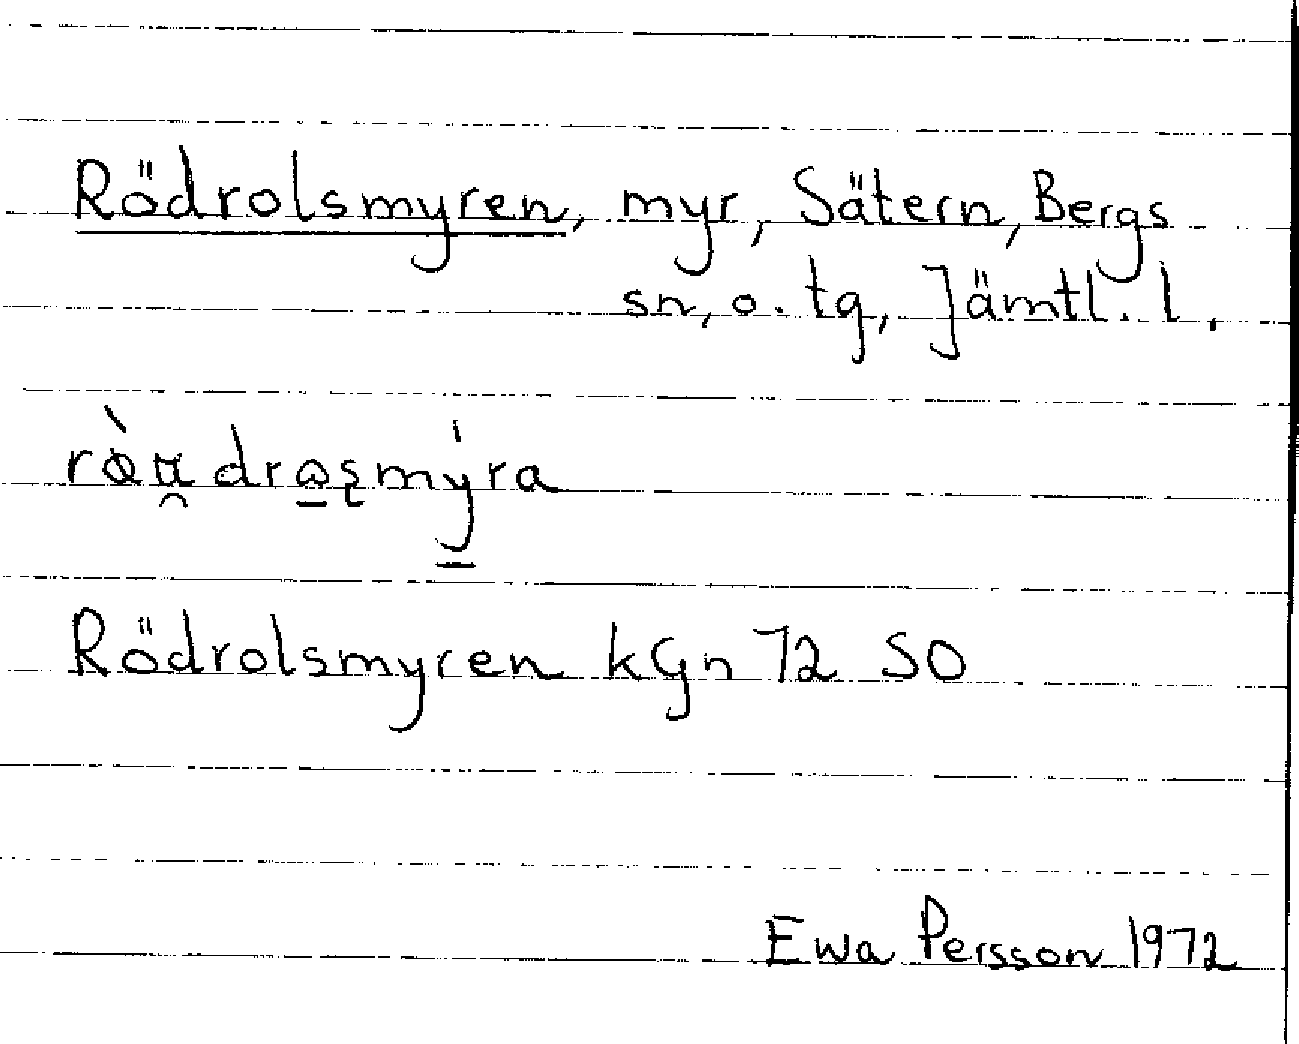 Rödrolsmyren, myr, Sätern, Bergs
sn, o. tg, Jämtl. l.
Rödrolsmyren kGn 72 SO
Ewa Persson 1972